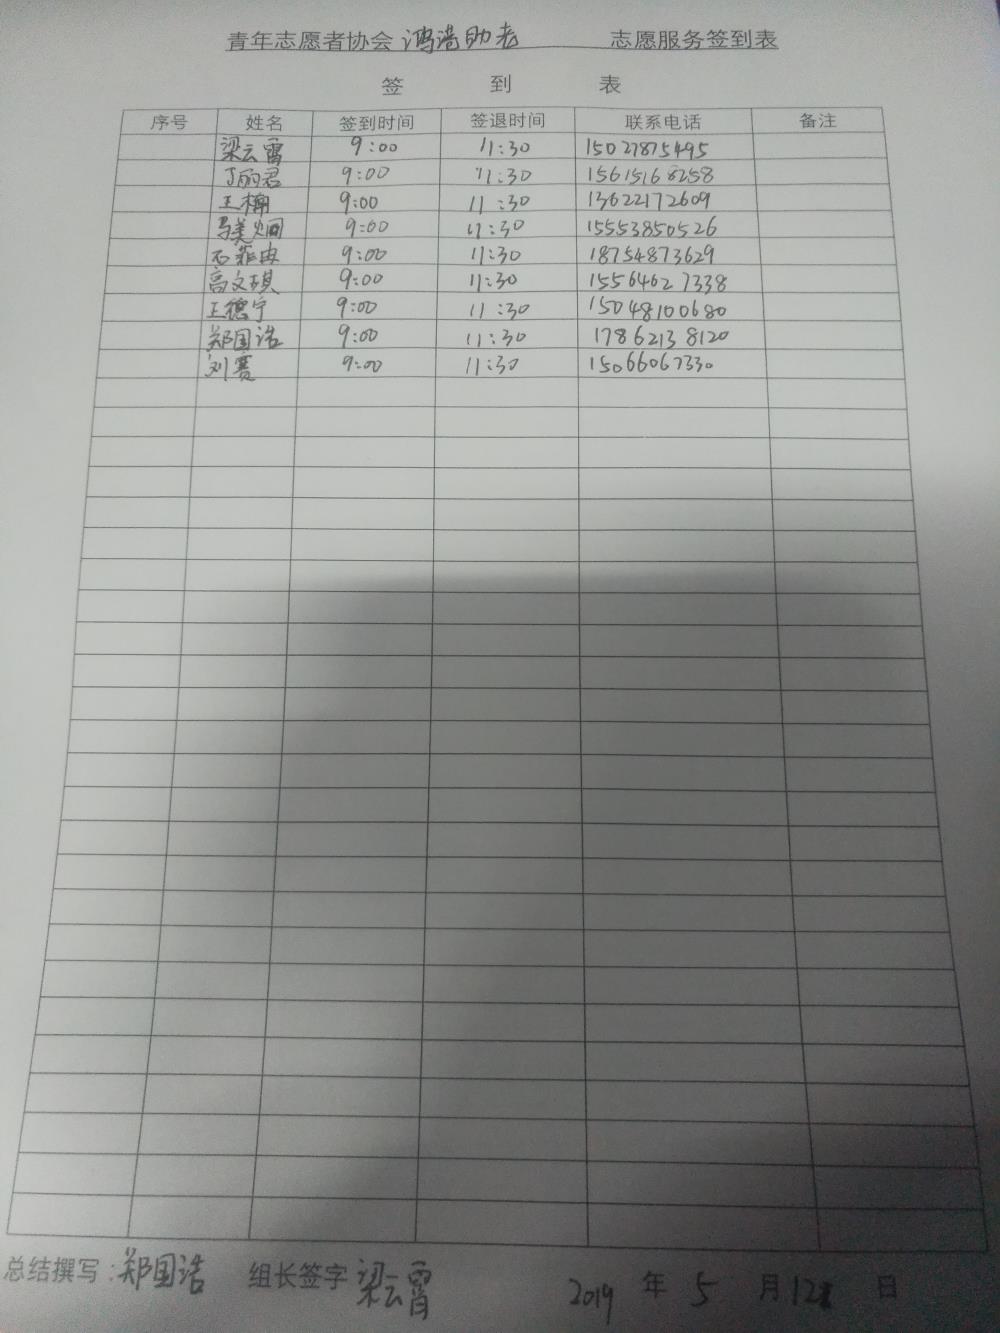 青年志愿者协会 鸿浩助老 志愿服务签到表
签 到 表
序号 姓名 签到时间 签退时间 联系电话 备注
梁云霄 9:00 11:30 15027875495
丁丽君 9:00 11:30 15615168258
王梅 9:00 11:30 13622172609
马美烟 9:00 11:30 15553850526
石菲冉 9:00 11:30 18754873629
高文琪 9:00 11:30 15564627338
王德宁 9:00 11:30 15048100680
郑国浩 9:00 11:30 17862138120
刘赛 9:00 11:30 15066067330
总结撰写:郑国浩 组长签字 梁云霄 2019 年 5 月 12 日